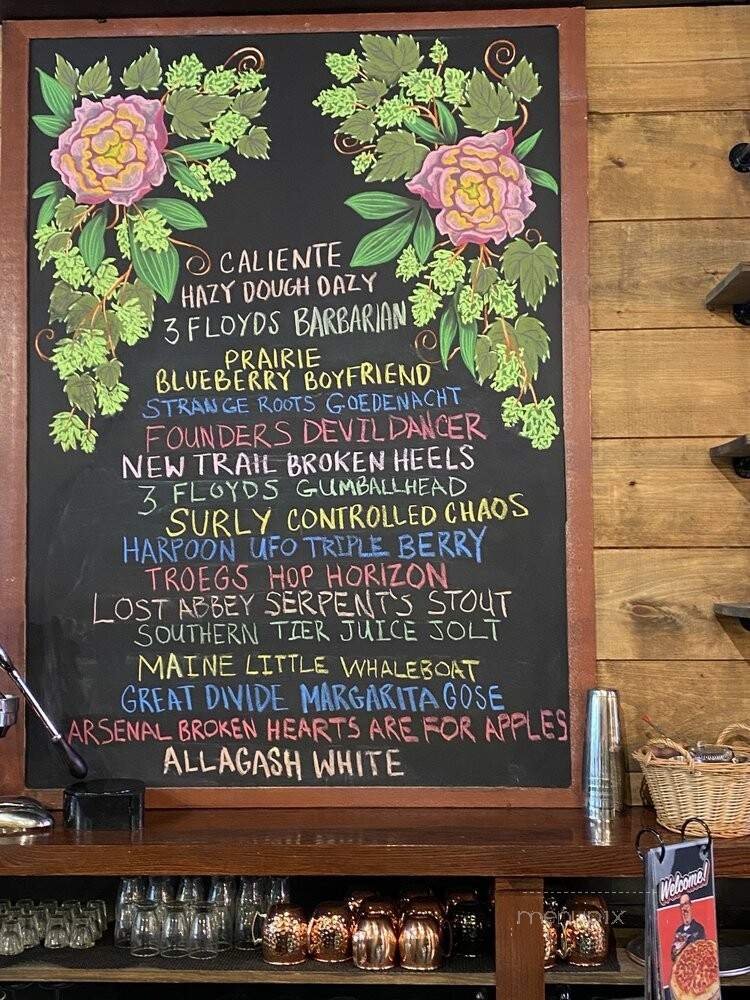 CALIENTE
HAZY DOUGH DAZY
3 FLOYDS BARBARIAN
PRAIRIE
BLUEBERRY BOYFRIEND
STRANGE ROOTS GOEDENACHT
FOUNDERS DEVIL DANCER
NEW TRAIL BROKEN HEELS
3 FLOYDS GUMBALLHEAD
SURLY CONTROLLED CHAOS
HARPOON UFO TRIPLE BERRY
TROEGS HOP HORIZON
LOST ABBEY SERPENT'S STOUT
SOUTHERN TIER JUICE JOLT
MAINE LITTLE WHALEBOAT
GREAT DIVIDE MARGARITA GOSE
ARSENAL BROKEN HEARTS ARE FOR APPLES
ALLAGASH WHITE
Welcome!
menupix